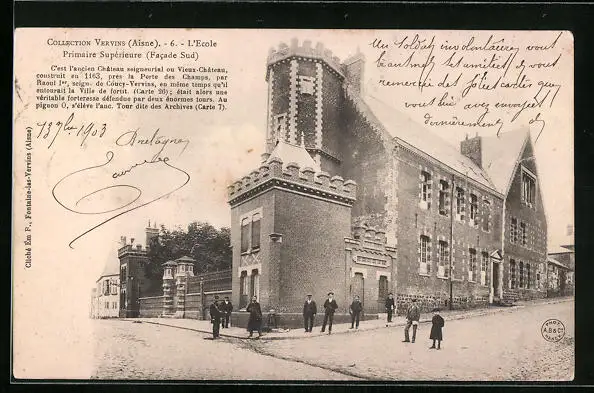 Collection Vervins (Aisne). - 6. - L'Ecole
Primaire Supérieure (Façade Sud)
C'est l'ancien Château seigneurial ou Vieux-Château,
construit en 1163, près la Porte des Champs, par
Raoul Ier, seign. de Coucy-Vervins, en même temps qu'il
entourait la Ville de fortif. (Carte 26); était alors une
véritable forteresse défendue par deux énormes tours. Au
pignon O. s'élève l'anc. Tour dite des Archives (Carte 7).
Un Soldat involontaire vous
remercie des Jolies cartes que
vous lui avez envoyées
dernièrement
1903
Bretagne
Cliché Em P., Fontaine-les-Vervins (Aisne)
PHOT
A.B & Cie
NANCY